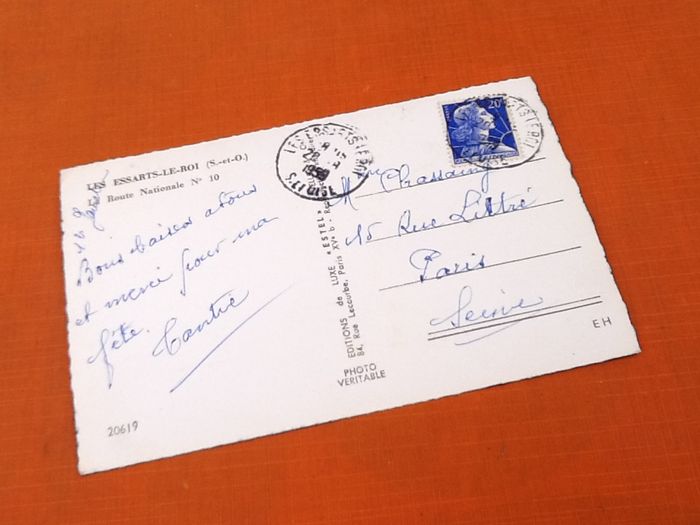 LES ESSARTS-LE-ROI (S.-et-O.)
Route Nationale N° 10
Bons baisers à tous
et merci pour ma
fête.
Tantie
20619
EDITIONS de LUXE "ESTEL"
84, Rue Lecourbe, Paris XVe
PHOTO
VERITABLE
LES ESSARTS LE ROI
1958
S.ET OISE
20F
Mme Chassaing
15 Rue Littré
Paris
Seine
EH